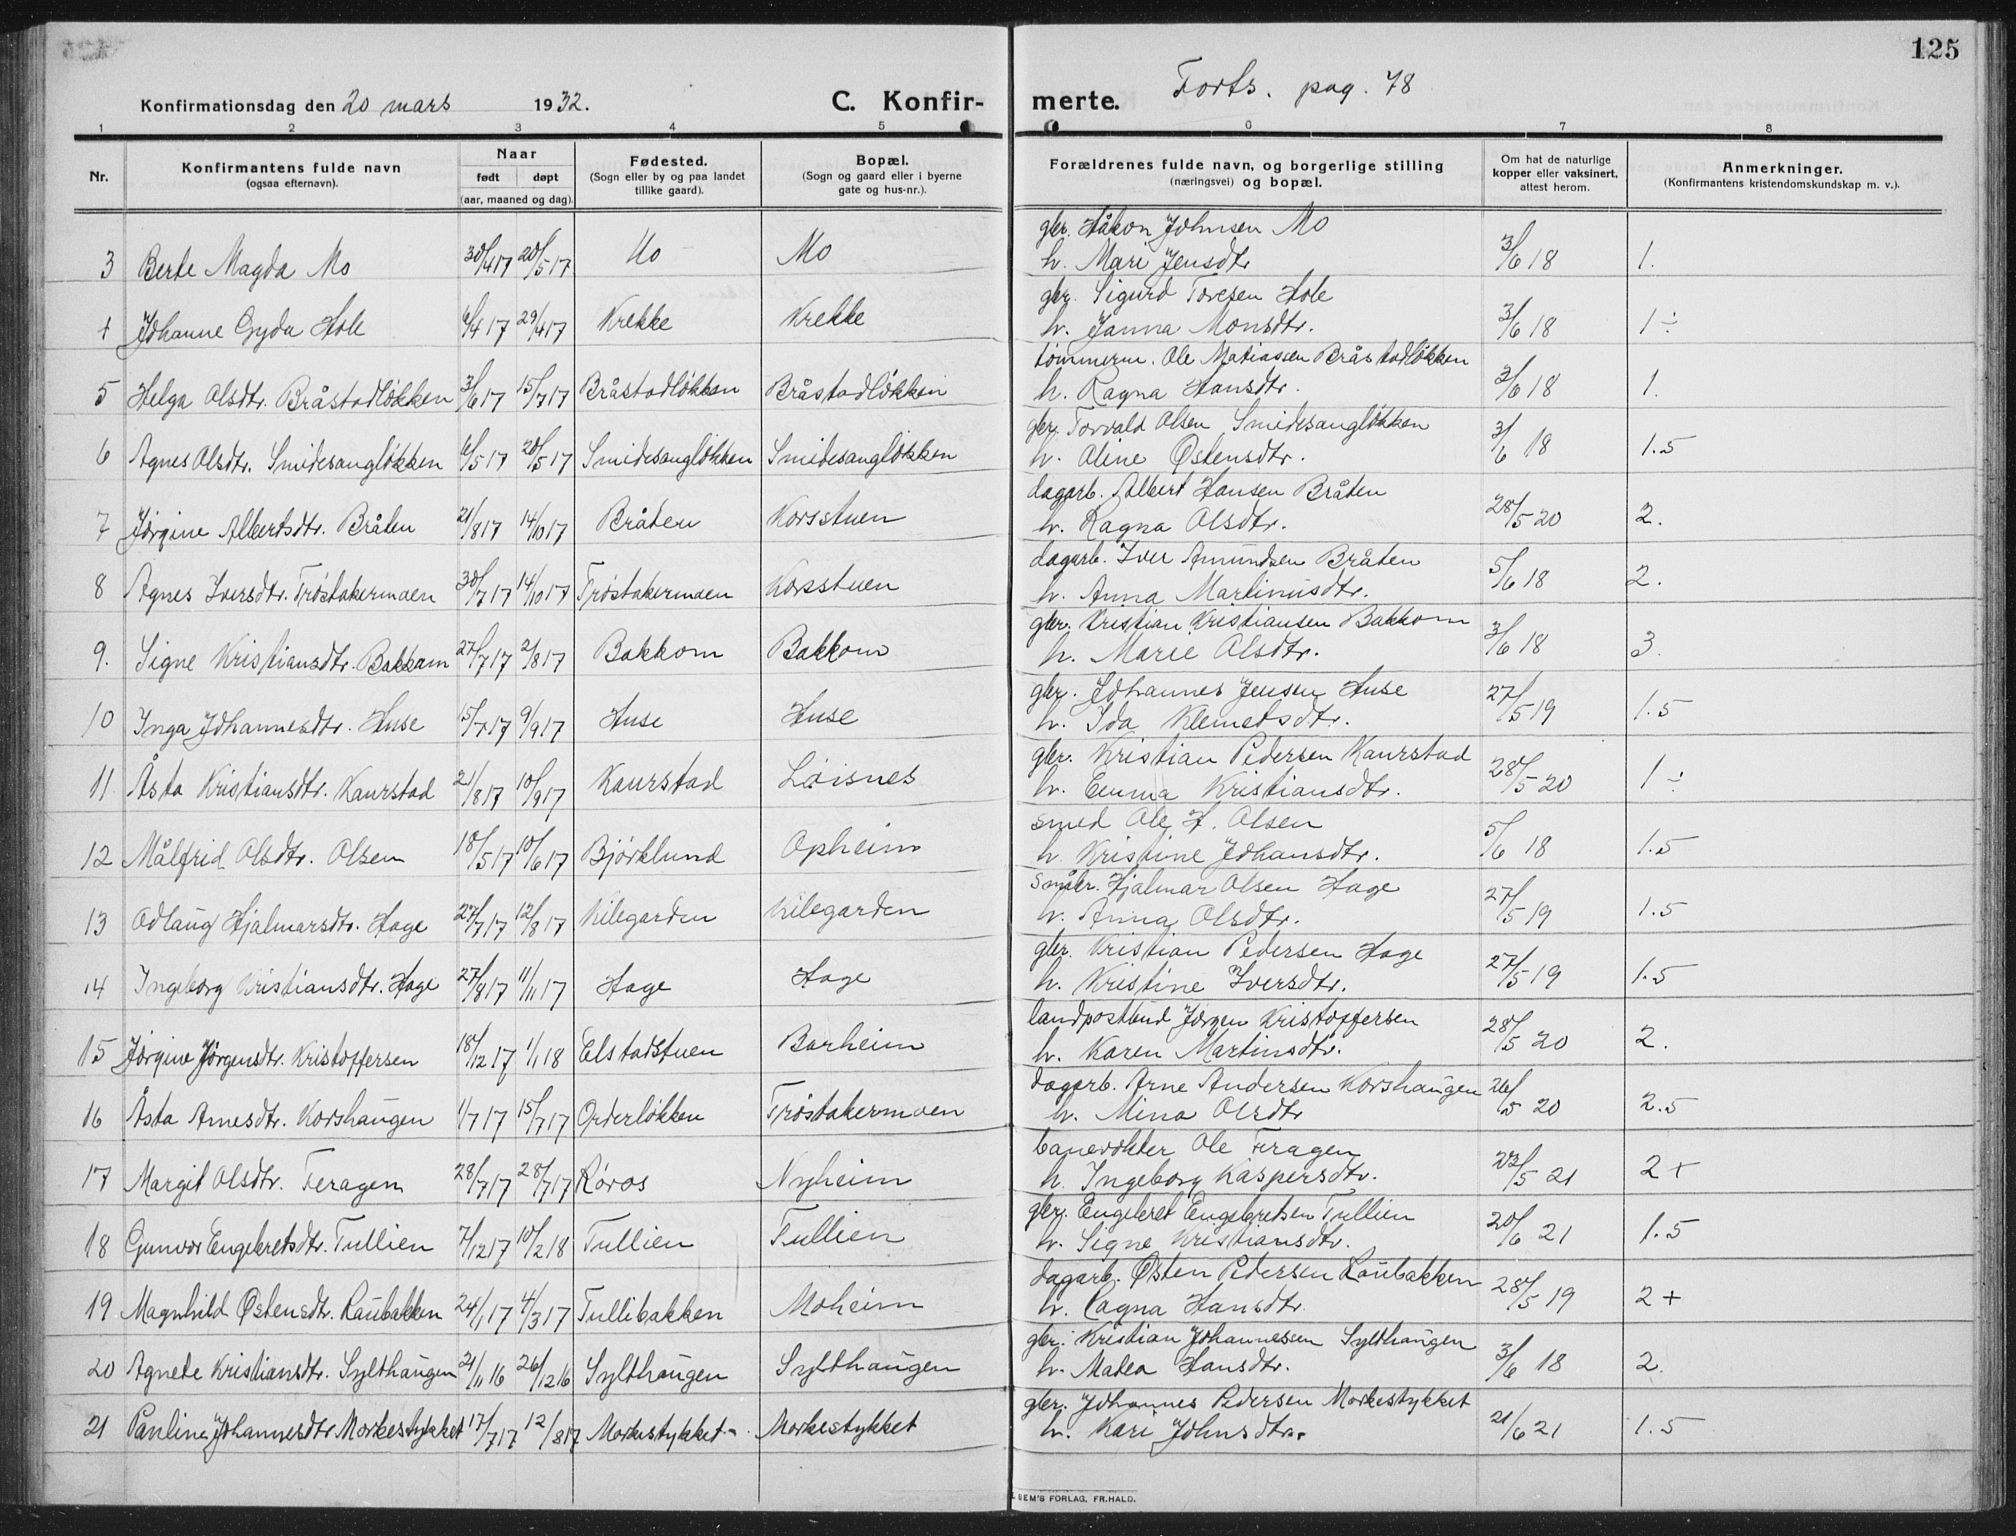 125
Konfirmationsdag den 20 mars 1932.
C. Konfirmerte. Forts. pag. 78
1 2 3 4 5 6 7 8
Nr.
Konfirmantens fulde navn
(ogsaa efternavn).
Naar
født døpt
(aar, maaned og dag).
Fødested.
(Sogn eller by og paa landet
tillike gaard).
Bopæl.
(Sogn og gaard eller i byerne
gate og hus-nr.).
Forældrenes fulde navn, og borgerlige stilling
(næringsvei) og bopæl.
Om hat de naturlige
kopper eller vaksinert,
attest herom.
Anmerkninger.
(Konfirmantens kristendomskundskap m. v.).
gbr. Håkon Johnsen Mo
3 Berte Magda Mo 30/4 17 20/5 17 Mo Mo h. Mari Jensdtr 3/6 18 1.
gbr. Sigurd Toresen Hole
4 Johanne Gyda Hole 6/4 17 29/4 17 Krekke Krekke h. Janna Monsdtr. 3/6 18 1 ÷
tømmerm. Ole Matiassen Bråstadløkken
5 Helga Olsdtr. Bråstadløkken 3/6 17 15/7 17 Bråstadløkken Bråstadløkken h. Ragna Hansdtr. 3/6 18 1.
gbr. Torvald Olsen Smidesangløkken
6 Agnes Olsdtr. Smidesangløkken 6/5 17 20/5 17 Smidesangløkken Smidesangløkken h. Oline Østensdtr. 3/6 18 1.5
dagarb. Albert Hansen Bråten
7 Jørgine Albertsdtr. Bråten 21/8 17 14/10 17 Bråten Korsstuen h. Ragna Olsdtr. 28/5 20 2.
dagarb. Iver Amundsen Bråten
8 Agnes Iversdtr. Trøstakermoen 30/7 17 14/10 17 Trøstakermoen Korsstuen h. Anna Martinusdtr. 5/6 18 2.
gbr. Kristian Kristiansen Bakkom
9. Signe Kristiansdtr. Bakkom 27/7 17 2/8 17 Bakkom Bakkom h. Marie Olsdtr. 3/6 18 3.
gbr. Johannes Jensen Huse
10 Inga Johannesdtr. Huse 15/7 17 9/9 17 Huse Huse h. Ida Klemetsdtr. 27/5 19 1.5
gbr. Kristian Pedersen Kaurstad
11 Åsta Kristiansdtr. Kaurstad 21/8 17 10/9 17 Kaurstad Løisnes h. Emma Kristiansdtr. 28/5 20 1 ÷
smed Ole H. Olsen
12 Målfrid Olsdtr. Olsen 18/5 17 10/6 17 Bjørklund Opheim h. Kristine Johansdtr. 5/6 18 1.5
småbr. Hjalmar Olsen Hage
13 Odlaug Hjalmarsdtr. Hage 27/7 17 12/8 17 Kilegarden Kilegarden h. Anna Olsdtr. 27/5 19 1.5
gbr. Kristian Pedersen Hage
14 Ingeborg Kristiansdtr. Hage 27/8 17 11/11 17 Hage Hage h. Kristine Iversdtr. 27/5 19 1.5
landpostbud Jørgen Kristoffersen
15 Jørgine Jørgensdtr. Kristoffersen 18/12 17 1/1 18 Elstadstuen Barheim h. Karen Martinsdtr. 28/5 20 2.
dagarb. Arne Andersen Korshaugen
16 Åsta Arnesdtr. Korshaugen 1/7 17 15/7 17 Orderløkken Trøstakermoen h. Mina Olsdtr 26/5 20 2.5
banevokter Ole Feragen
17 Margit Olsdtr. Feragen 28/7 17 28/7 17 Røros Nyheim h. Ingeborg Kaspersdtr. /5 21 2 +
gbr. Engebret Engebretsen Tullien
18 Gunvor Engebretsdtr. Tullien 7/12 17 10/2 18 Tullien Tullien h. Signe Kristiansdtr. 20/6 21 1.5
dagarb. Østen Pedersen Raubakken
19 Magnhild Østensdtr. Raubakken 24/1 17 4/3 17 Tullibakken Moheim h. Ragna Hansdtr. 28/5 19 2 +
gbr. Kristian Johannessen Sylthaugen
20 Agnete Kristiansdtr. Sylthaugen 21/11 16 26/12 16 Sylthaugen Sylthaugen h. Matea Hansdtr. 3/6 18 2.
gbr. Johannes Pedersen Morkestykket
21 Pauline Johannesdtr Morkestykket 17/7 17 12/8 17 Morkestykket Morkestykket h. Kari Johnsdtr. 21/6 21 1.5
SEM'S FORLAG, FR.HALD.